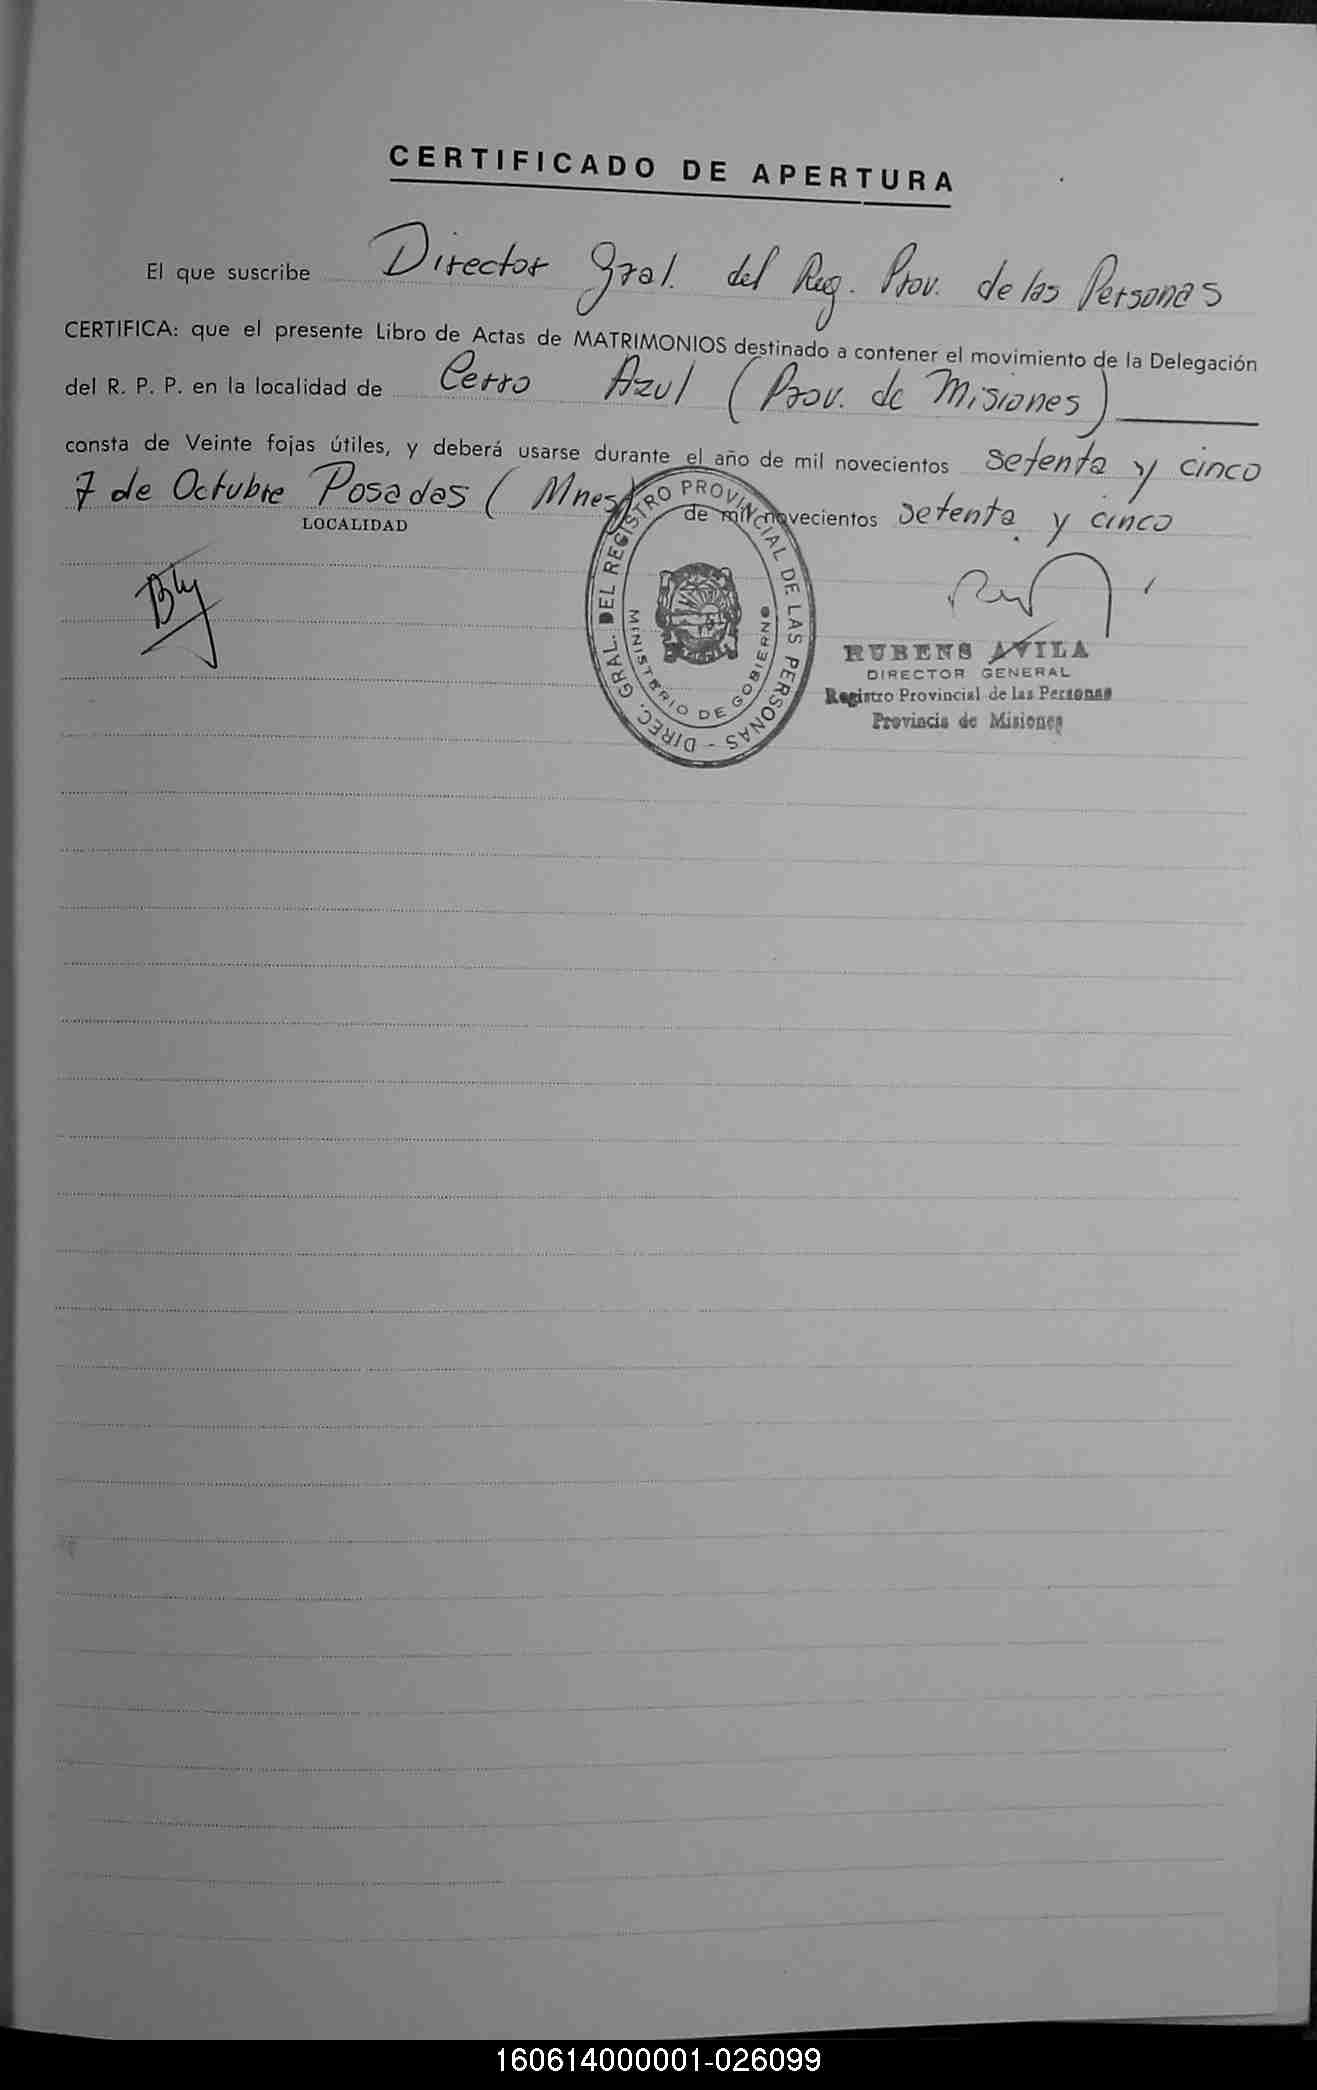 CERTIFICADO DE APERTURA
El que suscribe Director Gral. del Reg. Prov. de las Personas
CERTIFICA: que el presente Libro de Actas de MATRIMONIOS destinado a contener el movimiento de la Delegación
del R. P. P. en la localidad de Cerro Azul (Prov. de Misiones)
consta de Veinte fojas útiles, y deberá usarse durante el año de mil novecientos setenta y cinco
7 de Octubre Posadas (Mnes) de mil novecientos setenta y cinco
LOCALIDAD
DIREC. GRAL. DEL REGISTRO PROVINCIAL DE LAS PERSONAS -
MINISTERIO DE GOBIERNO
RUBENS AVILA
DIRECTOR GENERAL
Registro Provincial de las Personas
Provincia de Misiones
160614000001-026099